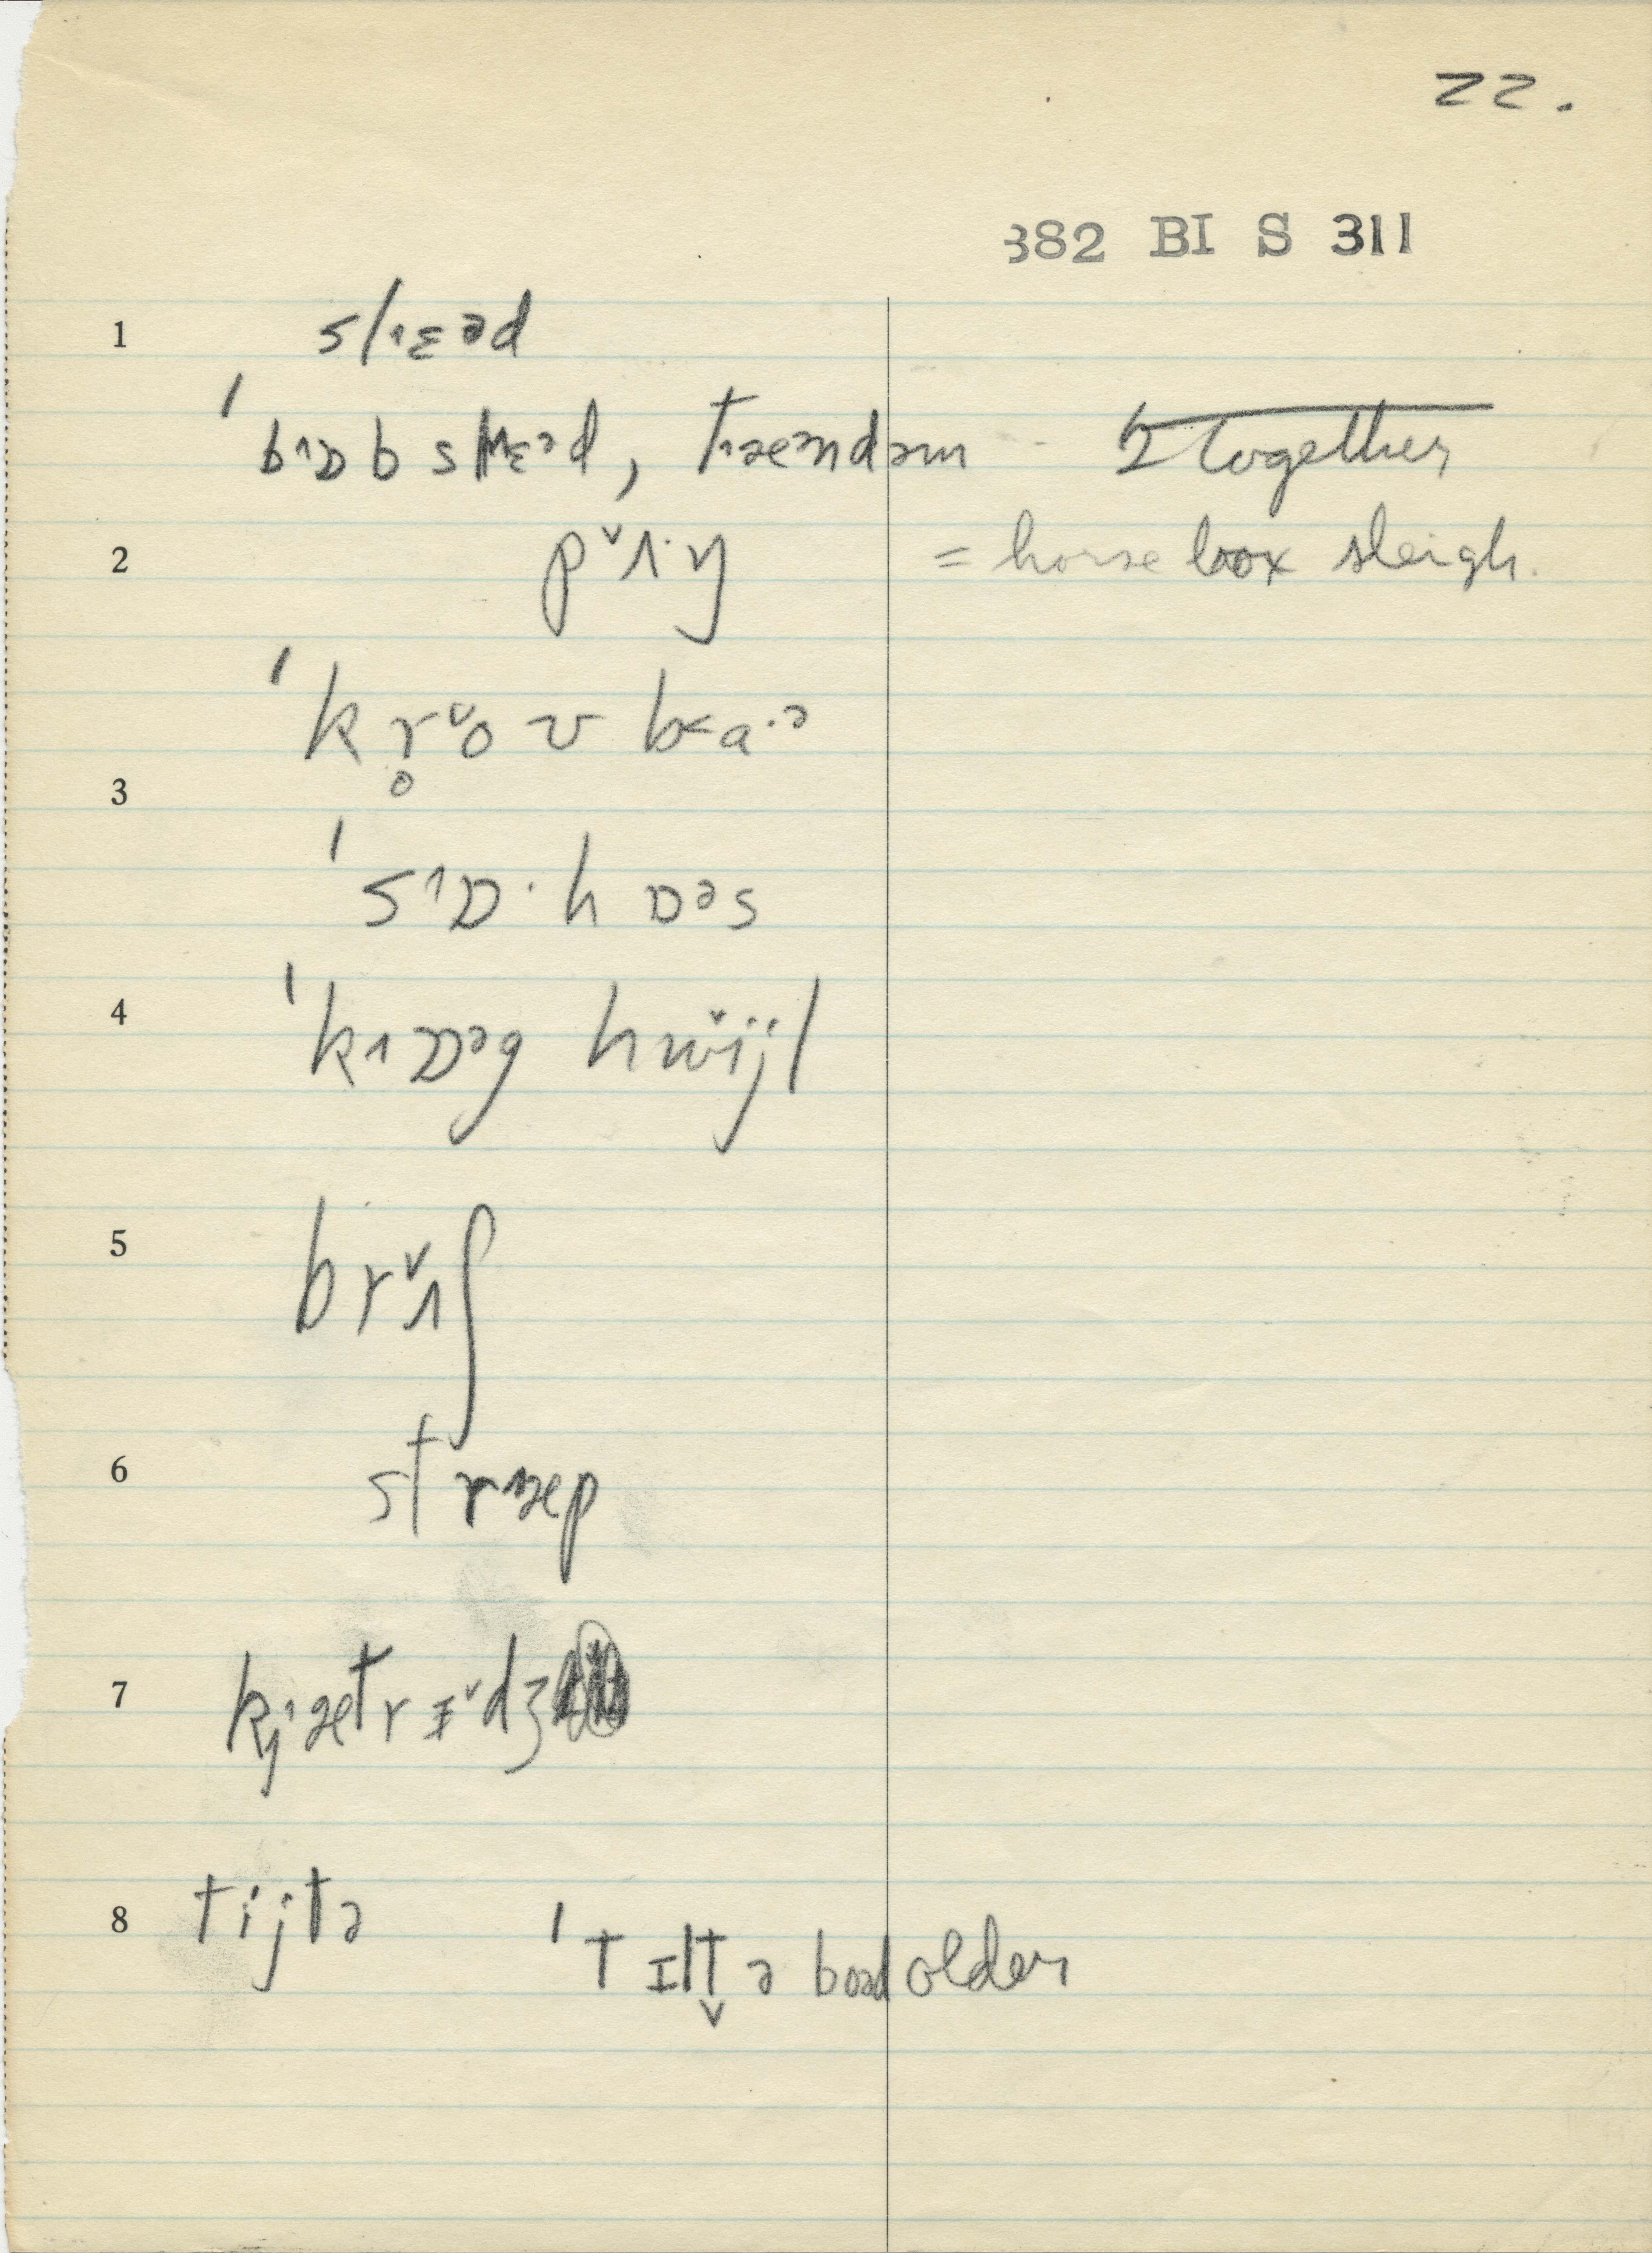 22.
382 BI S 311
1 sl˄ɛəd
ˈb˄ɒb sl˄ɛəd, t˄æendəm 2 together
2 p˅ʌ·ŋ = horse box sleigh.
ˈkr̥˅oʊ b˂a·ə
3
ˈs˄ɒ·hɒəs
4 ˈk˄ɒəg hw˅ijl
5 br˅ʌʃ
6 str˄æp
7 kj˄ætrɪ˅dʒ
8 tijtə ˈtɪlt̬ə boəd older